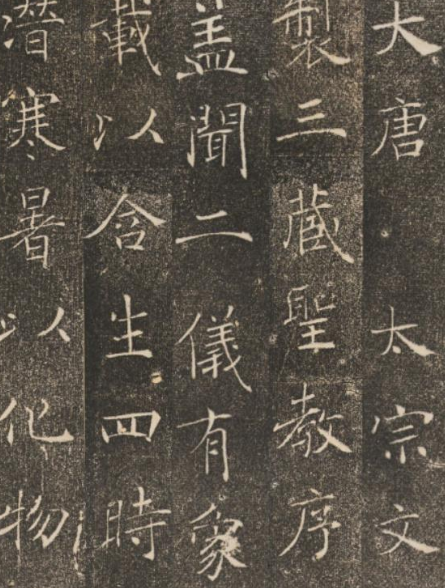 大唐太宗文
製三藏聖教序
盖聞二儀有象
載以含生四時
潛寒暑以化物